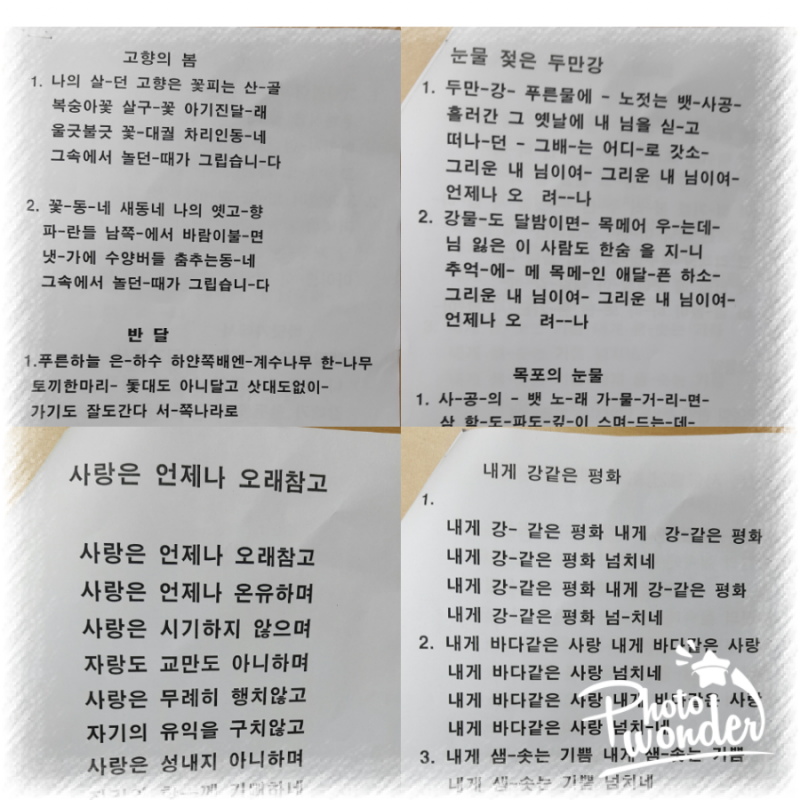 고향의 봄
1. 나의 살-던 고향은 꽃피는 산-골
복숭아꽃 살구-꽃 아기진달-래
울긋불긋 꽃-대궐 차리인동-네
그속에서 놀던-때가 그립습니-다
2. 꽃-동-네 새동네 나의 옛고-향
파-란들 남쪽-에서 바람이불-면
냇-가에 수양버들 춤추는동-네
그속에서 놀던-때가 그립습니-다
반 달
1.푸른하늘 은-하수 하얀쪽배엔-계수나무 한-나무
토끼한마리- 돛대도 아니달고 삿대도없이-
가기도 잘도간다 서-쪽나라로
눈물 젖은 두만강
1. 두만-강- 푸른물에 - 노젓는 뱃-사공-
흘러간 그 옛날에 내 님을 싣-고
떠나-던 - 그배-는 어디-로 갓소-
그리운 내 님이여- 그리운 내 님이여-
언제나 오 려--나
2. 강물-도 달밤이면- 목메어 우-는데-
님 잃은 이 사람도 한숨 을 지-니
추억-에- 메 목메-인 애달-픈 하소-
그리운 내 님이여- 그리운 내 님이여-
언제나 오 려--나
목포의 눈물
1. 사-공-의 - 뱃 노-래 가-물-거-리-면-
삼 학-도-파도-깊-이 스며-드는-데-
사랑은 언제나 오래참고
사랑은 언제나 오래참고
사랑은 언제나 온유하며
사랑은 시기하지 않으며
자랑도 교만도 아니하며
사랑은 무례히 행치않고
자기의 유익을 구치않고
사랑은 성내지 아니하며
내게 강같은 평화
1.
내게 강- 같은 평화 내게 강-같은 평화
내게 강-같은 평화 넘치네
내게 강-같은 평화 내게 강-같은 평화
내게 강-같은 평화 넘-치네
2. 내게 바다같은 사랑 내게 바다같은 사랑
내게 바다같은 사랑 넘치네
내게 바다같은 사랑 내게 바다같은 사랑
내게 바다같은 사랑 넘치-네
3. 내게 샘-솟는 기쁨 내게 샘-솟는 기쁨
내게 샘-솟는 기쁨 넘치네
Photo
wonder